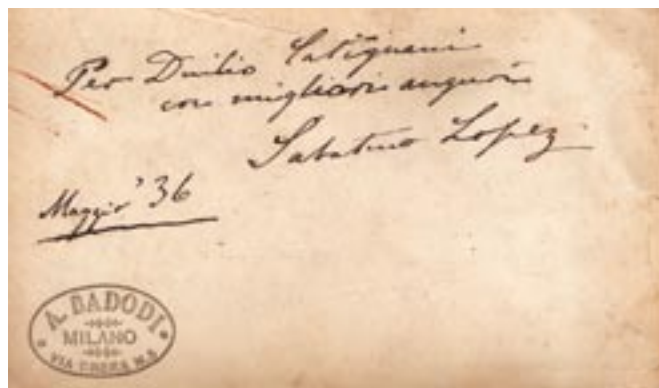 Per Duilio Catignani
con migliori auguri
Sabatino Lopez
Maggio '36
A. BADODI
MILANO
VIA BRERA N.5